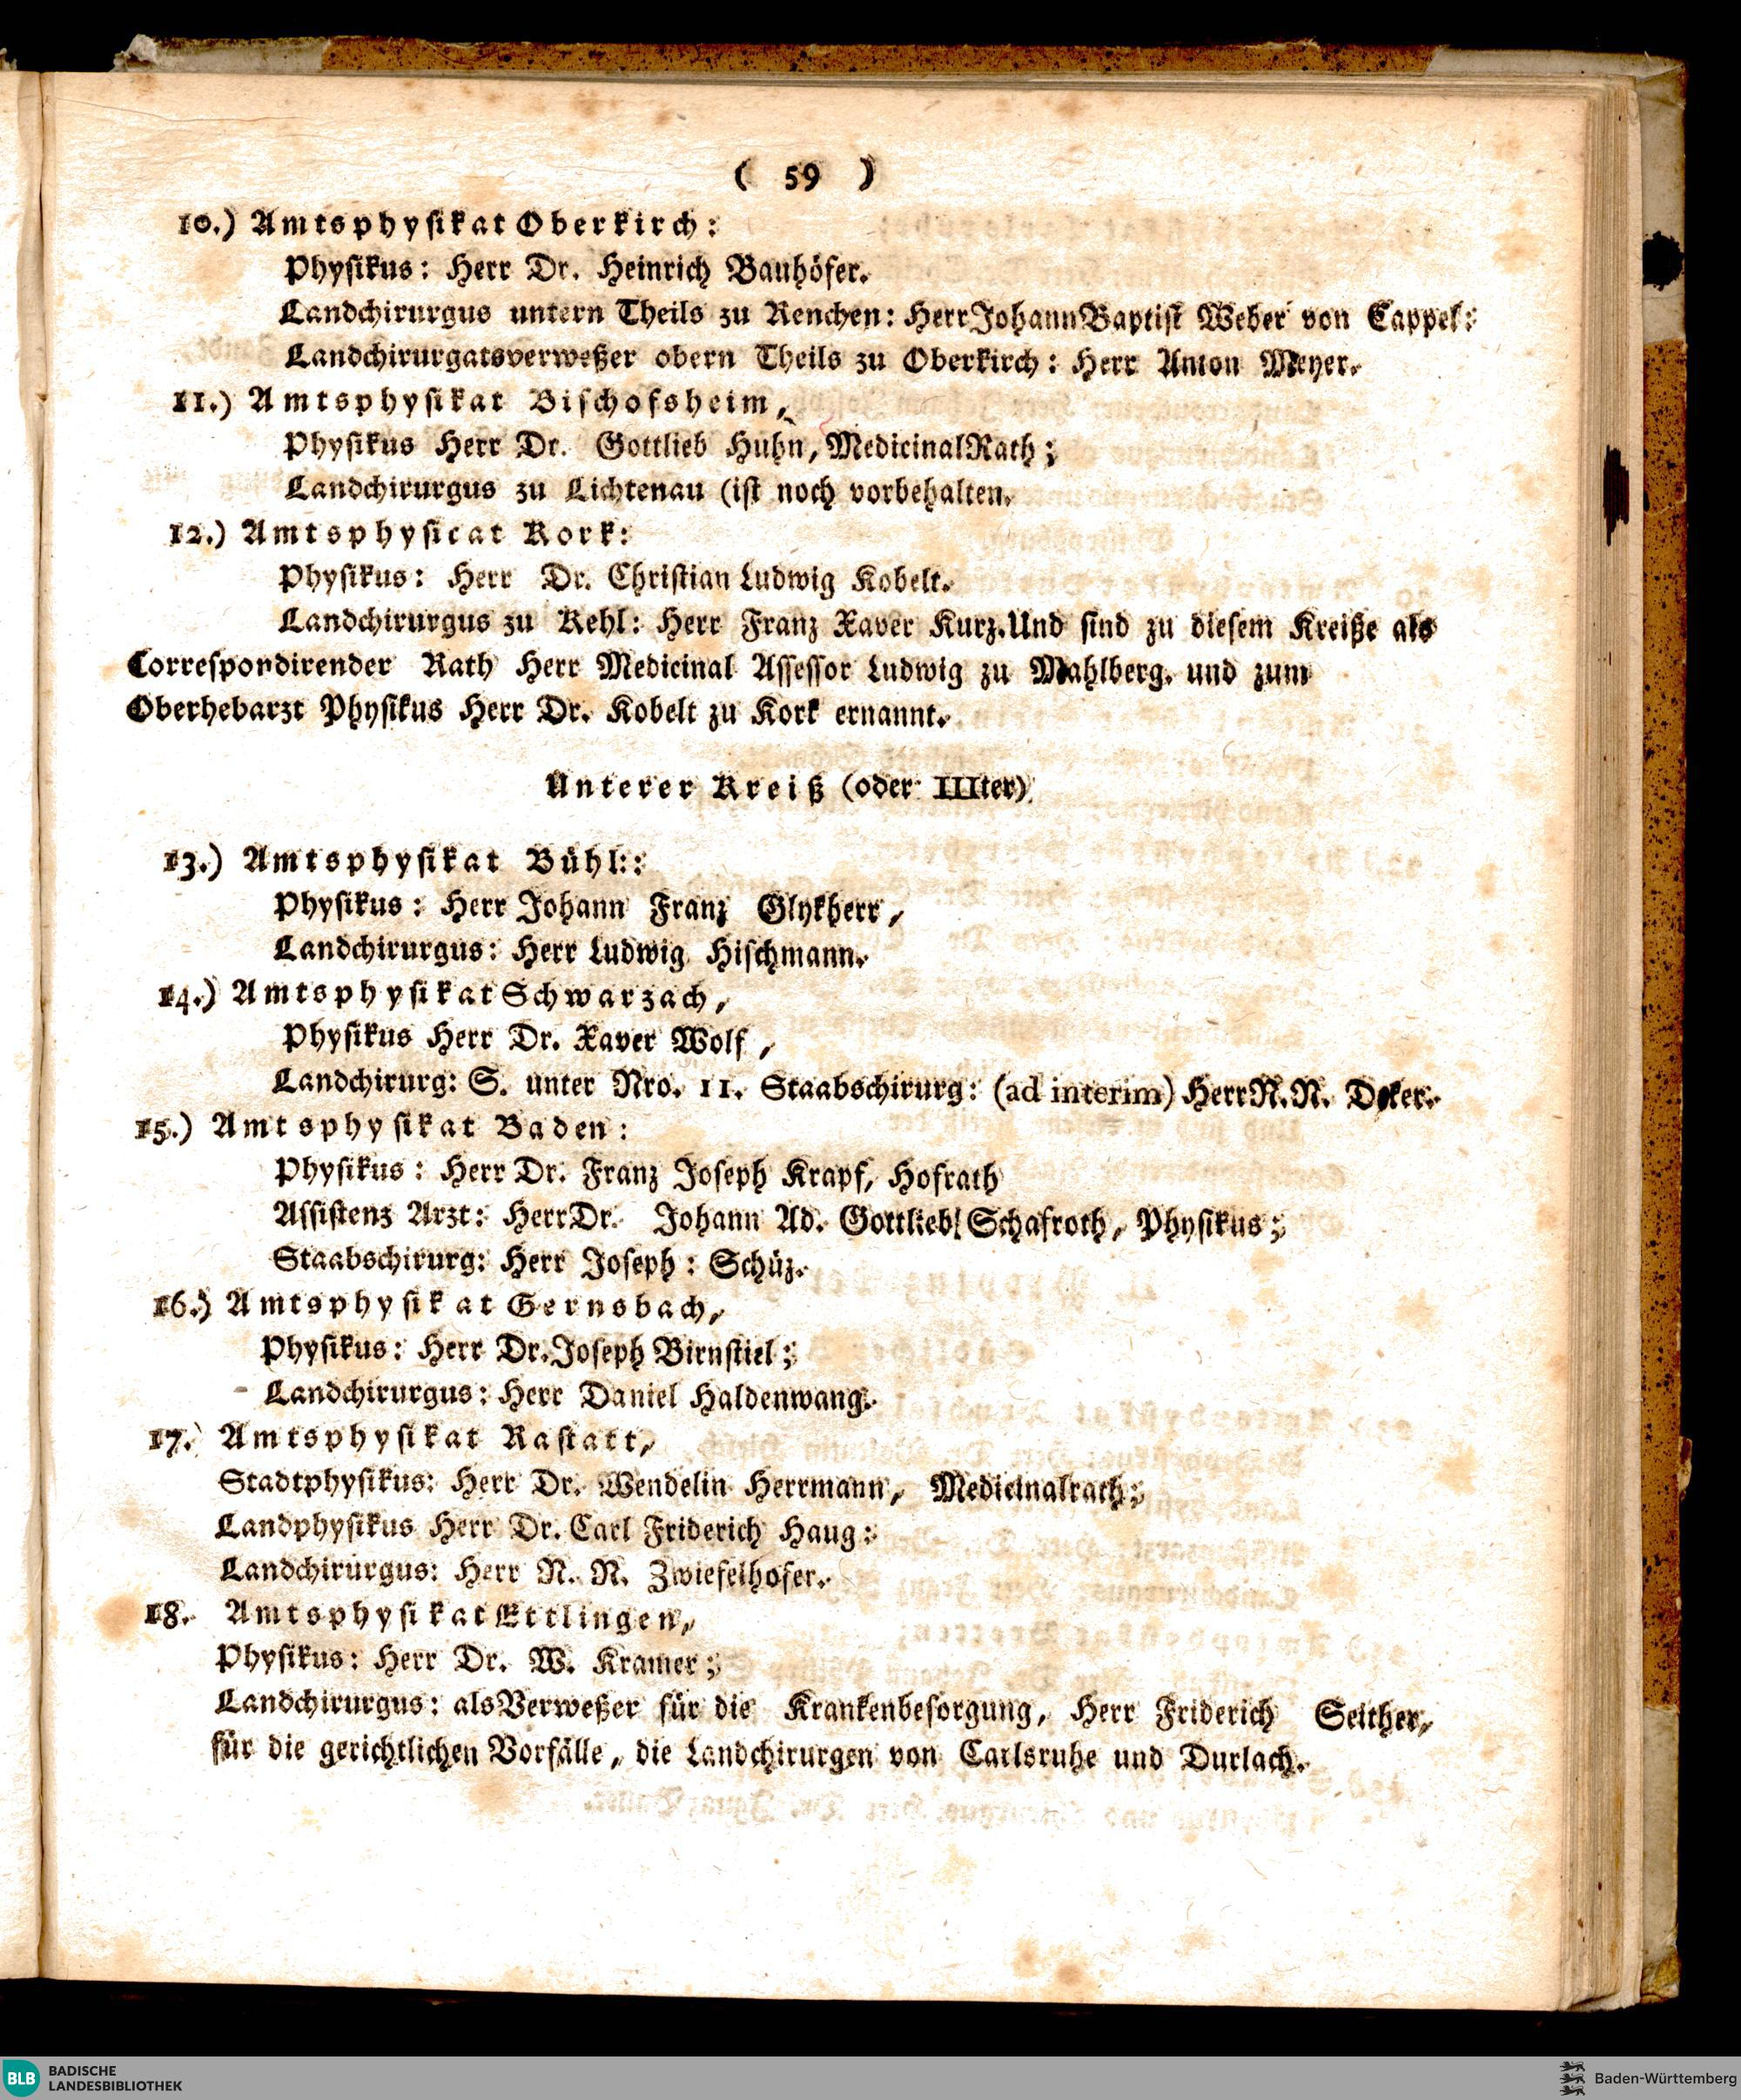 ( 59 )
10.) Amtsphysikat Oberkirch:
Physikus: Herr Dr. Heinrich Bauhöfer.
Landchirurgus untern Theils zu Renchen: Herr Johann Baptist Weber von Cappel:
Landchirurgatsverweßer obern Theils zu Oberkirch: Herr Anton Meyer.
11.) Amtsphysikat Bischofsheim,
Physikus Herr Dr. Gottlieb Huhn, MedicinalRath;
Landchirurgus zu Lichtenau (ist noch vorbehalten.
12.) Amtsphysicat Kork:
Physikus: Herr Dr. Christian Ludwig Kobelt.
Landchirurgus zu Kehl: Herr Franz Xaver Kurz. Und sind zu diesem Kreiße als
Correspondirender Rath Herr Medicinal Assessor Ludwig zu Mahlberg. und zum
Oberhebarzt Physikus Herr Dr. Kobelt zu Kork ernannt.
Unterer Kreiß (oder IIIter)
13.) Amtsphysikat Bühl::
Physikus: Herr Johann Franz Glykherr,
Landchirurgus: Herr Ludwig Hischmann.
14.) Amtsphysikat Schwarzach,
Physikus Herr Dr. Xaver Wolf,
Landchirurg: S. unter Nro. 11. Staabschirurg: (ad interim) Herr N. N.
15.) Amtsphysikat Baden:
Physikus: Herr Dr. Franz Joseph Krapf, Hofrath
Assistenz Arzt: Herr Dr. Johann Ad. Gottlieb Schafroth, Physikus;
Staabschirurg: Herr Joseph: Schüz.
16.) Amtsphysikat Gernsbach,
Physikus: Herr Dr. Joseph Birnstiel;
Landchirurgus: Herr Daniel Haldenwang.
17. Amtsphysikat Rastatt,
Stadtphysikus: Herr Dr. Wendelin Herrmann, Medicinalrath;
Landphysikus Herr Dr. Carl Friderich Haug:
Landchirurgus: Herr N. N. Zwiefelhofer.
18. Amtsphysikat Ettlingen,
Physikus: Herr Dr. W. Kramer;
Landchirurgus: als Verweßer für die Krankenbesorgung, Herr Friderich Seither,
für die gerichtlichen Vorfälle, die Landchirurgen von Carlsruhe und Durlach.
BLB BADISCHE
LANDESBIBLIOTHEK
Baden-Württemberg